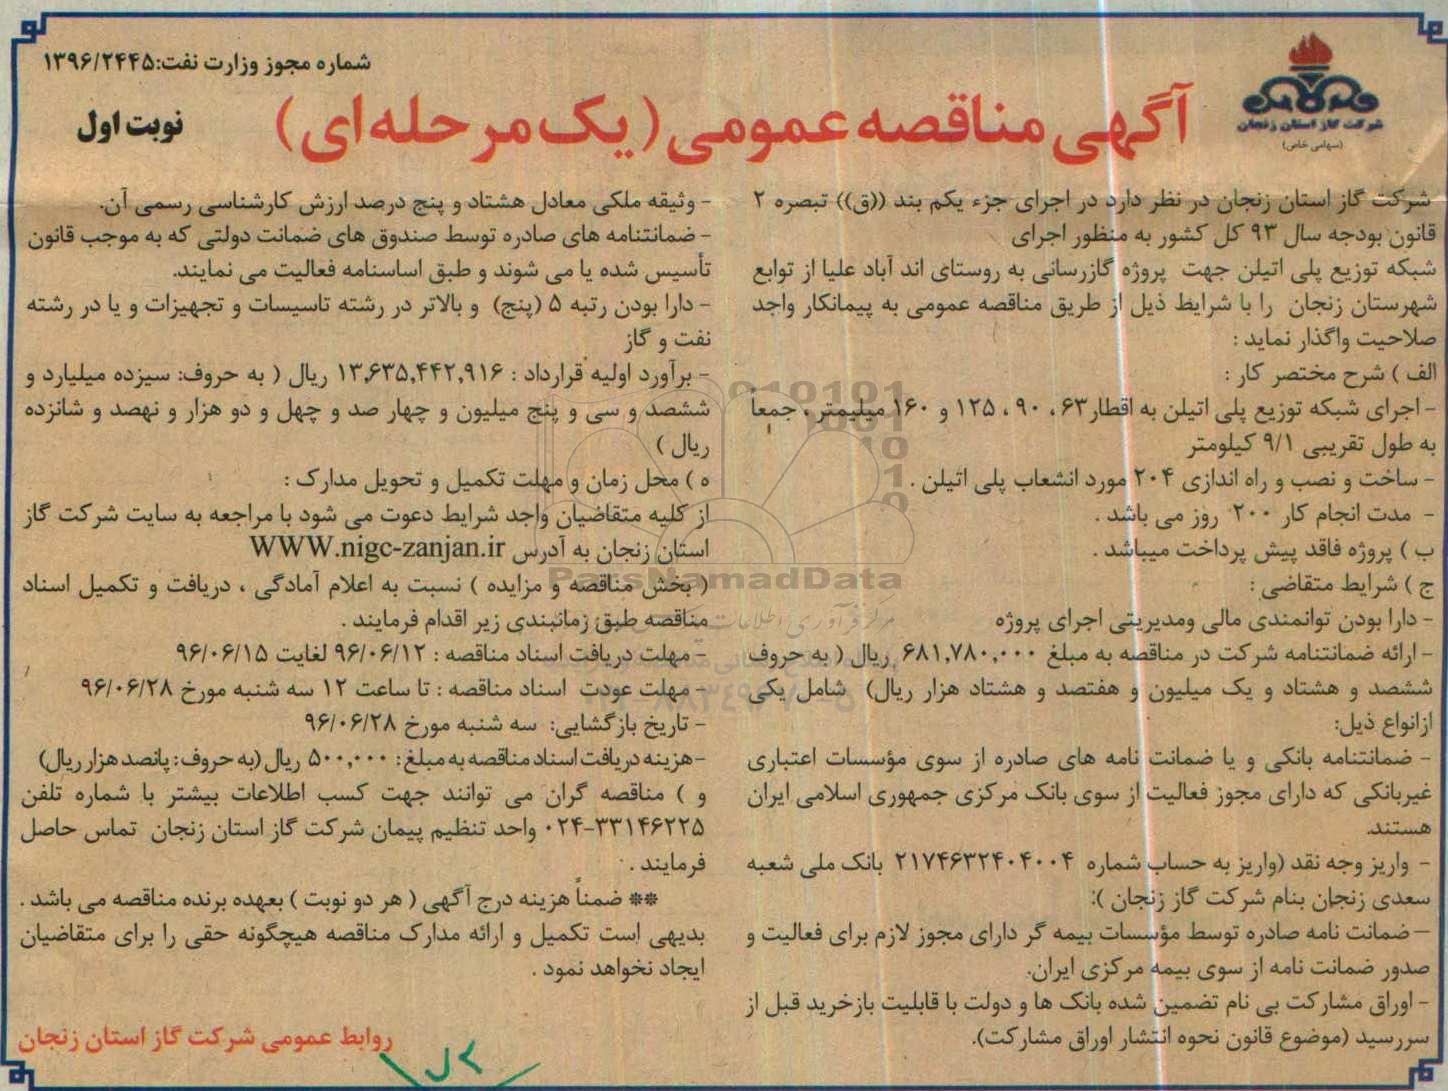 شماره مجوز وزارت نفت:۱۳۹۶/۲۴۴۵
شرکت گاز استان زنجان
(سهامی خاص)
آگهی مناقصه عمومی (یک مرحله ای)
نوبت اول
شرکت گاز استان زنجان در نظر دارد در اجرای جزء یکم بند ((ق)) تبصره ۲
قانون بودجه سال ۹۳ کل کشور به منظور اجرای
شبکه توزیع پلی اتیلن جهت پروژه گازرسانی به روستای اند آباد علیا از توابع
شهرستان زنجان را با شرایط ذیل از طریق مناقصه عمومی به پیمانکار واجد
صلاحیت واگذار نماید :
الف ) شرح مختصر کار :
- اجرای شبکه توزیع پلی اتیلن به اقطار ۶۳ ، ۹۰ ، ۱۲۵ و ۱۶۰ میلیمتر ، جمعاً
به طول تقریبی ۹/۱ کیلومتر
- ساخت و نصب و راه اندازی ۲۰۴ مورد انشعاب پلی اتیلن .
- مدت انجام کار ۲۰۰ روز می باشد .
ب ) پروژه فاقد پیش پرداخت میباشد .
ج ) شرایط متقاضی :
- دارا بودن توانمندی مالی ومدیریتی اجرای پروژه
- ارائه ضمانتنامه شرکت در مناقصه به مبلغ ۶۸۱,۷۸۰,۰۰۰ ریال ( به حروف
ششصد و هشتاد و یک میلیون و هفتصد و هشتاد هزار ریال) شامل یکی
ازانواع ذیل:
- ضمانتنامه بانکی و یا ضمانت نامه های صادره از سوی مؤسسات اعتباری
غیربانکی که دارای مجوز فعالیت از سوی بانک مرکزی جمهوری اسلامی ایران
هستند.
- واریز وجه نقد (واریز به حساب شماره ۲۱۷۴۶۳۲۴۰۴۰۰۴ بانک ملی شعبه
سعدی زنجان بنام شرکت گاز زنجان ):
- ضمانت نامه صادره توسط مؤسسات بیمه گر دارای مجوز لازم برای فعالیت و
صدور ضمانت نامه از سوی بیمه مرکزی ایران.
- اوراق مشارکت بی نام تضمین شده بانک ها و دولت با قابلیت بازخرید قبل از
سررسید (موضوع قانون نحوه انتشار اوراق مشارکت).
- وثیقه ملکی معادل هشتاد و پنج درصد ارزش کارشناسی رسمی آن.
- ضمانتنامه های صادره توسط صندوق های ضمانت دولتی که به موجب قانون
تأسیس شده یا می شوند و طبق اساسنامه فعالیت می نمایند.
- دارا بودن رتبه ۵ (پنج) و بالاتر در رشته تاسیسات و تجهیزات و یا در رشته
نفت و گاز
- برآورد اولیه قرارداد : ۱۳,۶۳۵,۴۴۲,۹۱۶ ریال ( به حروف: سیزده میلیارد و
ششصد و سی و پنج میلیون و چهار صد و چهل و دو هزار و نهصد و شانزده
ریال )
ه ) محل زمان و مهلت تکمیل و تحویل مدارک :
از کلیه متقاضیان واجد شرایط دعوت می شود با مراجعه به سایت شرکت گاز
استان زنجان به آدرس WWW.nigc-zanjan.ir
( بخش مناقصه و مزایده ) نسبت به اعلام آمادگی ، دریافت و تکمیل اسناد
مناقصه طبق زمانبندی زیر اقدام فرمایند .
- مهلت دریافت اسناد مناقصه : ۹۶/۰۶/۱۲ لغایت ۹۶/۰۶/۱۵
- مهلت عودت اسناد مناقصه : تا ساعت ۱۲ سه شنبه مورخ ۹۶/۰۶/۲۸
- تاریخ بازگشایی: سه شنبه مورخ ۹۶/۰۶/۲۸
- هزینه دریافت اسناد مناقصه به مبلغ : ۵۰۰,۰۰۰ ریال (به حروف: پانصد هزار ریال)
و ) مناقصه گران می توانند جهت کسب اطلاعات بیشتر با شماره تلفن
۰۲۴-۳۳۱۴۶۲۲۵ واحد تنظیم پیمان شرکت گاز استان زنجان تماس حاصل
فرمایند .
** ضمناً هزینه درج آگهی ( هر دو نوبت ) بعهده برنده مناقصه می باشد .
بدیهی است تکمیل و ارائه مدارک مناقصه هیچگونه حقی را برای متقاضیان
ایجاد نخواهد نمود .
روابط عمومی شرکت گاز استان زنجان
ParsNamadData